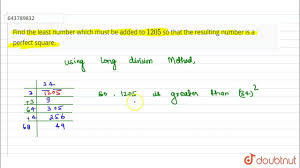 643789832
Find the least number which must be added to 1205 so that the resulting number is a
perfect square.
using Long division Method,
34
3 1205
+3 9
64 305
+4 256
68 49
so, 1205 is greater than (34)²
doubtnut